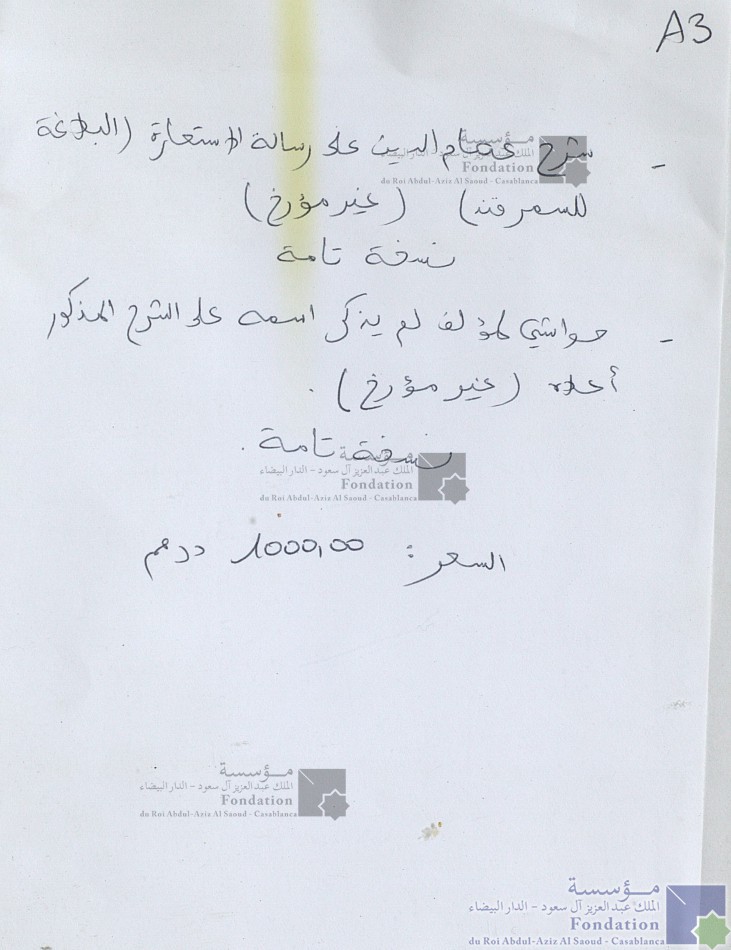 A3
- شرح عصام الدين على رسالة الاستعارة (البلاغة
للسمرقندي) (غير مؤرخ)
نسخة تامة
- حواشي لمؤلف لم يذكر اسمه على الشرح المذكور
أعلاه (غير مؤرخ).
نسخة تامة.
السعر: 1000,00 درهم
مؤسسة
الملك عبد العزيز آل سعود - الدار البيضاء
Fondation
du Roi Abdul-Aziz Al Saoud - Casablanca
مؤسسة
الملك عبد العزيز آل سعود - الدار البيضاء
Fondation
du Roi Abdul-Aziz Al Saoud - Casablanca
مؤسسة
الملك عبد العزيز آل سعود - الدار البيضاء
Fondation
du Roi Abdul-Aziz Al Saoud - Casablanca
مؤسسة
الملك عبد العزيز آل سعود - الدار البيضاء
Fondation
du Roi Abdul-Aziz Al Saoud - Casablanca